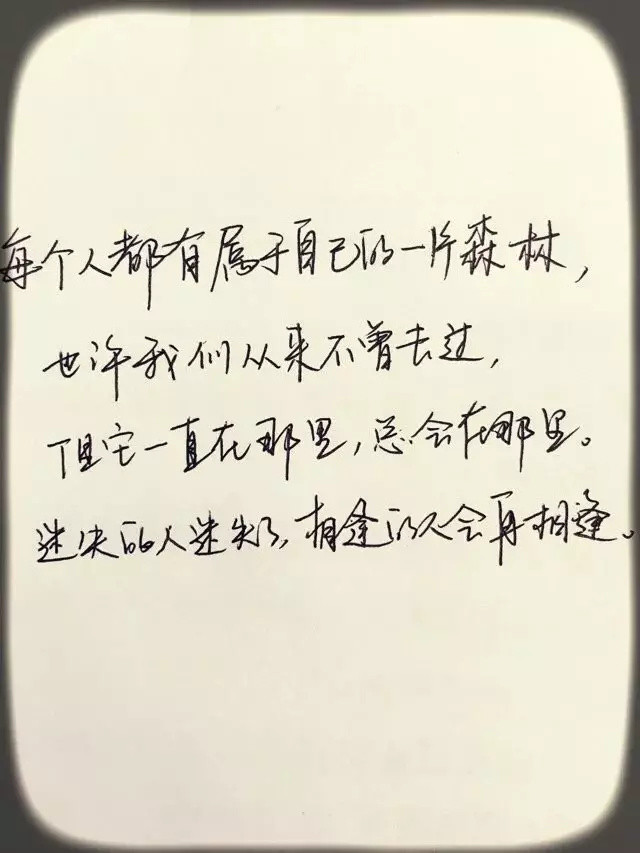 每个人都有属于自己的一片森林，
也许我们从来不曾去过，
但它一直在那里，总会在那里。
迷失的人迷失了，相逢的人会再相逢。